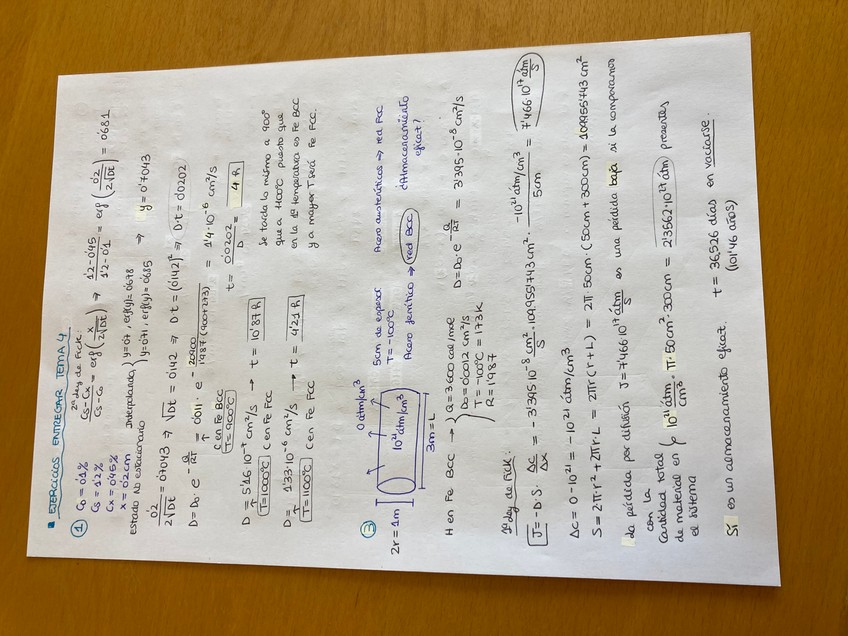 ▪ EJERCICIOS ENTREGAR TEMA 4
① C₀ = 0'1%
Cs = 1'2%
Cx = 0'45%
x = 0'2 cm
Estado No estacionario
2ª ley de Fick:
(Cs - Cx)/(Cs - C₀) = erf(x/(2√Dt)) ⇒ (1'2 - 0'45)/(1'2 - 0'1) = erf(0'2/(2√Dt)) = 0'681
Interpolando { y = 0'7, erf(y) = 0'678
y = 0'71, erf(y) = 0'685 ⇒ y = 0'7043
0'2/(2√Dt) = 0'7043 ⇒ √Dt = 0'142 ⇒ Dt = (0'142)² ⇒ D·t = 0'0202
D = D₀ · e^(-Q/RT) = 0'011 · e^(-20400/(1'987(900+273))) = 1'4·10⁻⁶ cm²/s
↑
C en Fe BCC
T = 900ºC
t = 0'0202/D = 4 h
D = 5'16·10⁻⁷ cm²/s → t = 10'87 h
↑
T = 1000ºC C en Fe FCC
D = 1'33·10⁻⁶ cm²/s → t = 4'21 h
↑
T = 1100ºC C en Fe FCC
Se tarda lo mismo a 900º
que a 1100ºC puesto que
en la 1ª temperatura es Fe BCC
y a mayor T será Fe FCC.
③
2r = 1m
0 átm/cm³
10²¹ átm/cm³
3m = L
5cm de espesor
T = -100ºC
Acero austeníticos ⇒ red FCC
Acero ferrítico → red BCC
¿Almacenamiento
eficaz?
H en Fe BCC → { Q = 3600 cal/mol
D₀ = 0'0012 cm²/s
T = -100ºC = 173K
R = 1'987
D = D₀ · e^(-Q/RT) = 3'395·10⁻⁸ cm²/s
1ª ley de Fick:
J = -D · S · Δc/Δx = -3'395·10⁻⁸ cm²/s · 109955'743 cm² · (-10²¹ átm/cm³)/5cm = 7'466·10¹⁷ átm/s
Δc = 0 - 10²¹ = -10²¹ átm/cm³
S = 2π·r² + 2πr·L = 2πr(r+L) = 2π 50cm · (50cm + 300cm) = 109955'743 cm²
La pérdida por difusión J = 7'466·10¹⁷ átm/s es una pérdida baja si la comparamos
con la
cantidad total
de material en
el sistema
10²¹ átm/cm³ · π·50cm²·300cm = 2'3562·10²⁷ átm presentes
Sí es un almacenamiento eficaz. t = 36,526 días en vaciarse.
(101'46 años)